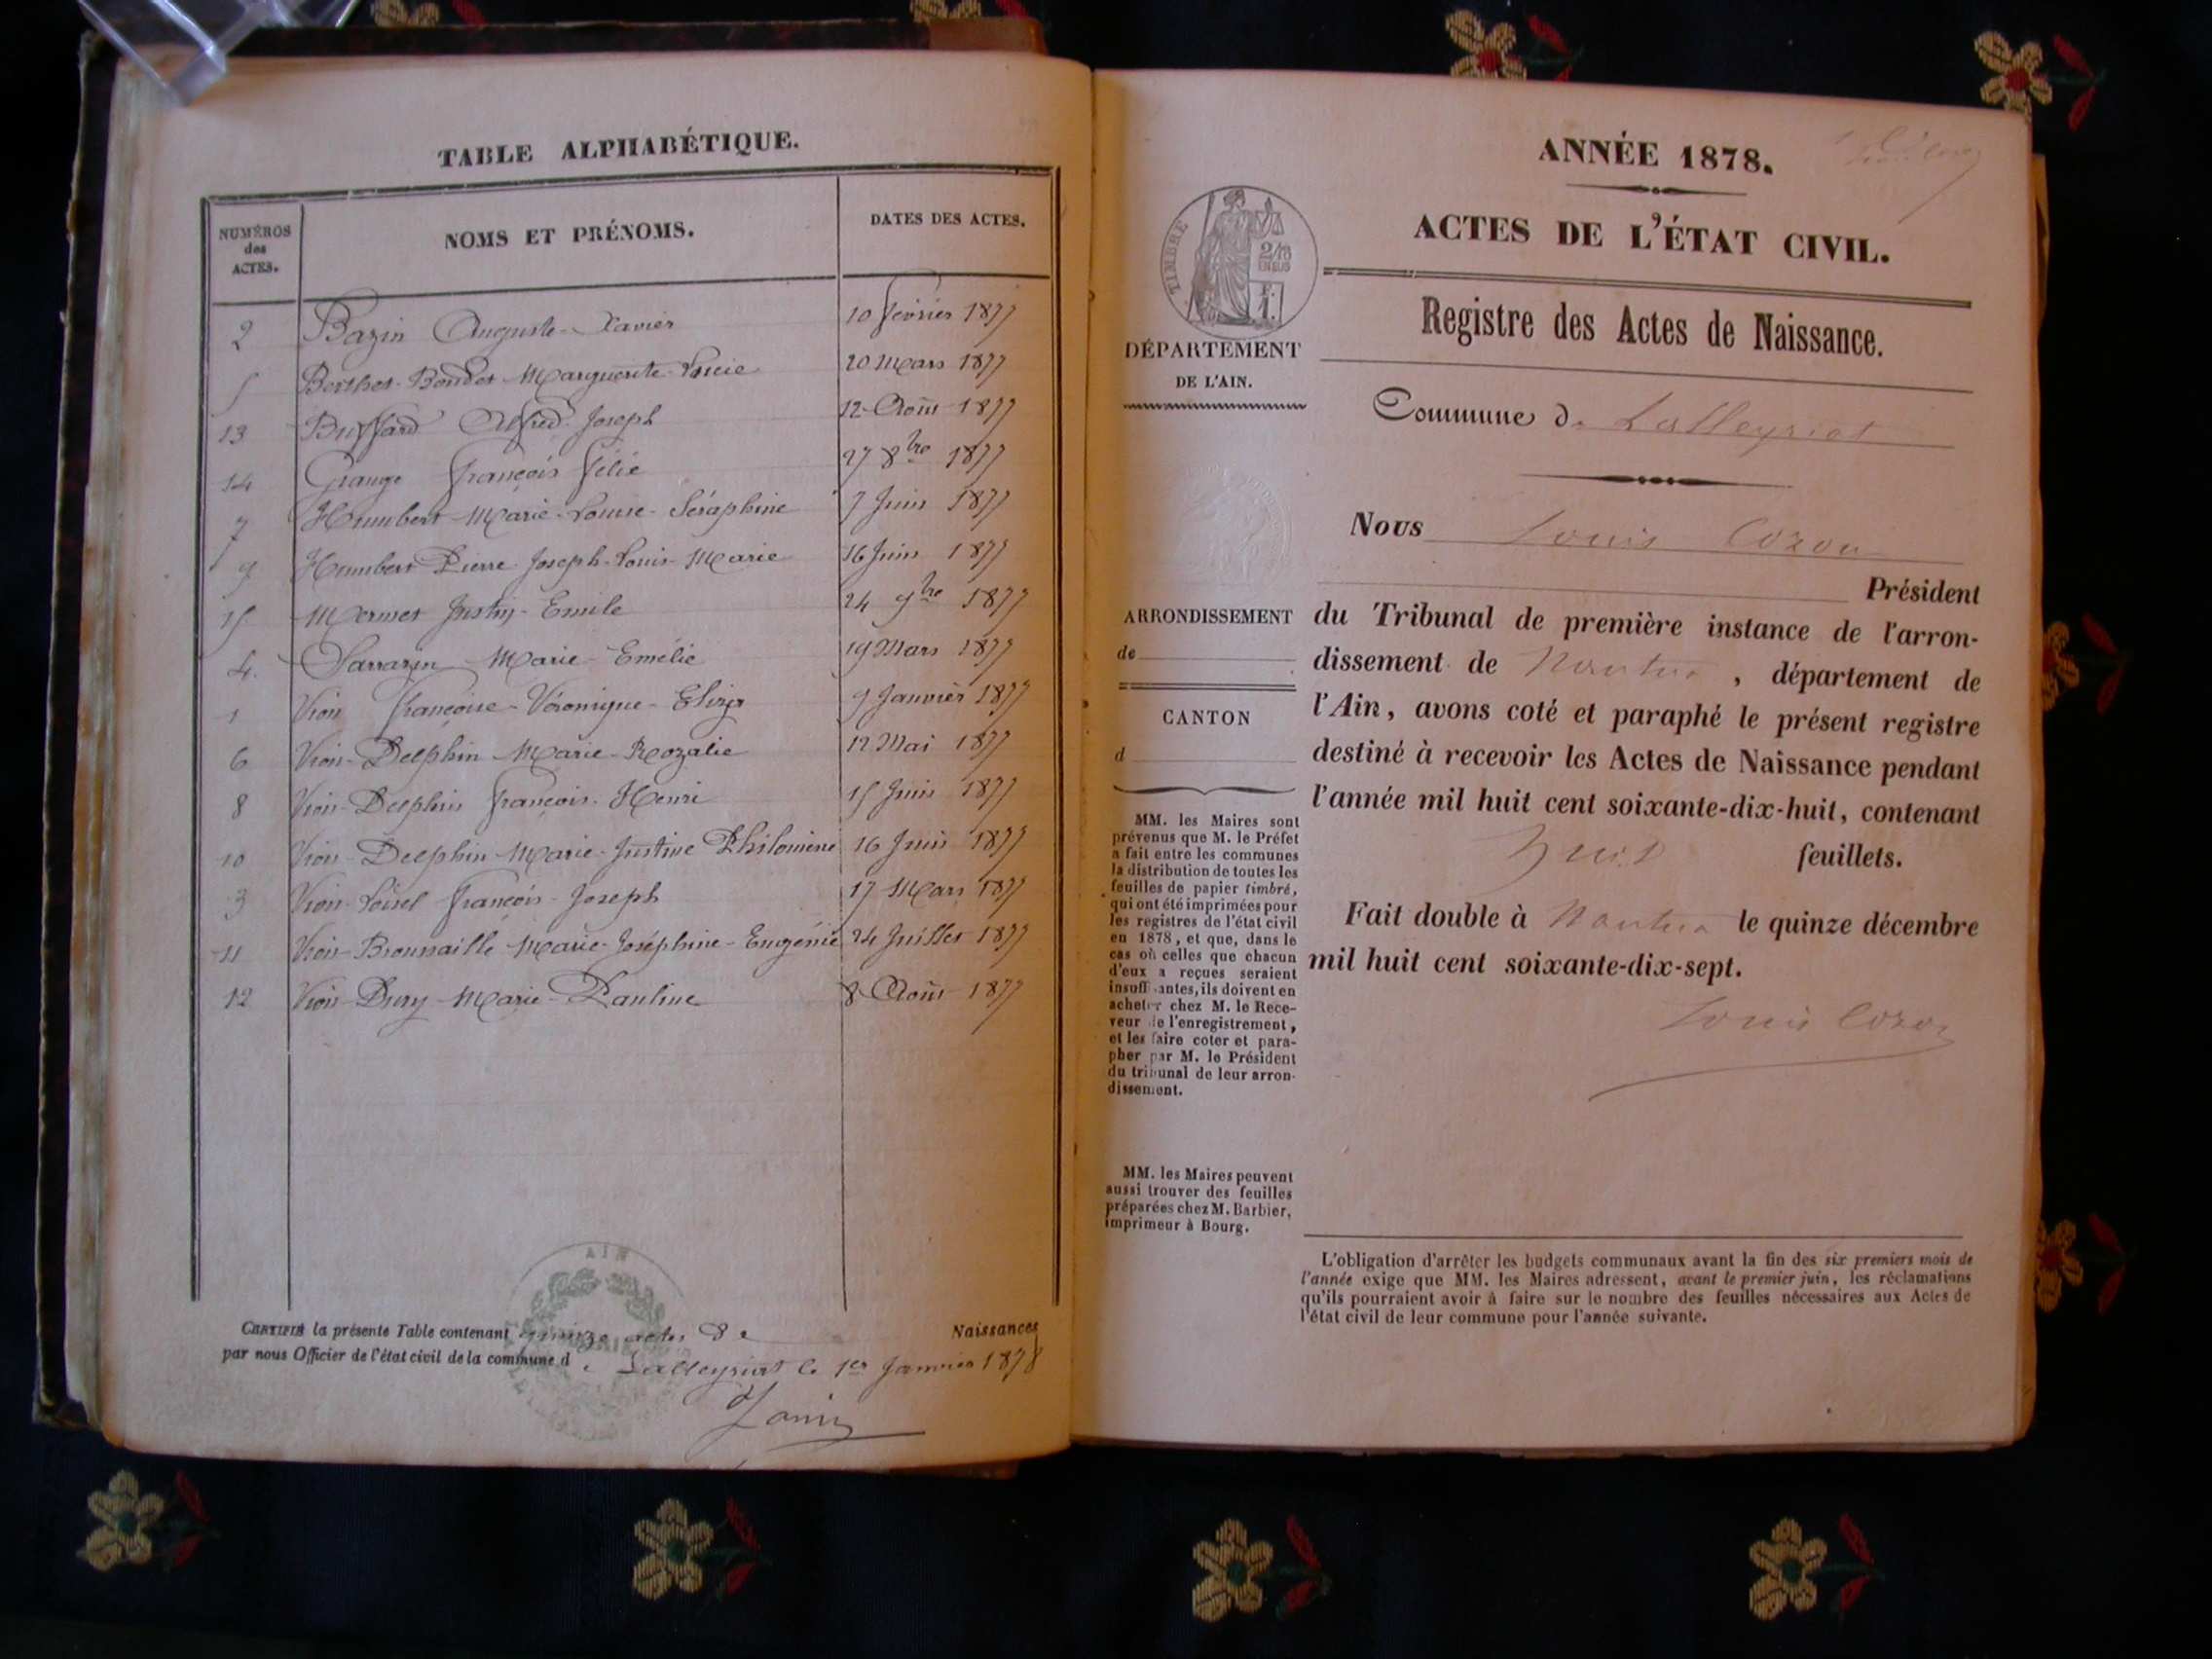 TABLE ALPHABÉTIQUE.
NUMÉROS des ACTES. NOMS ET PRÉNOMS. DATES DES ACTES.
2 Bazin Auguste-Xavier 10 février 1877
5 Berthet-Bondet Marguerite-Lucie 20 Mars 1877
13 Buffard Alfred Joseph 12 Août 1877
14 Grange François Félie 27 8bre 1877
7 Humbert Marie-Louise-Séraphine 7 Juin 1877
9 Humbert Pierre Joseph-Louis-Marie 16 Juin 1877
15 Mermet Justin-Emile 24 9bre 1877
4. Sarrazin Marie-Emélie 19 Mars 1877
1 Vion Françoise-Véronique-Eliza 9 Janvier 1877
6 Vion-Delphin Marie-Rozalie 12 Mai 1877
8 Vion-Delphin François-Henri 15 Juin 1877
10 Vion-Delphin Marie-Justine Philomène 16 Juin 1877
3 Vion-Loisel François-Joseph 17 Mars 1877
11 Vion-Broussaille Marie-Joséphine-Eugénie 24 Juillet 1877
12 Vion-Dury Marie-Pauline 8 Août 1877
AIN
CERTIFIÉ la présente Table contenant quinze actes de Naissances
par nous Officier de l'état civil de la commune d e Lalleyriat le 1er Janvier 1878
ANNÉE 1878.
ACTES DE L'ÉTAT CIVIL.
TIMBRE
2/10
EN SUS
F.
1.
Registre des Actes de Naissance.
DÉPARTEMENT
DE L'AIN.
Commune de Lalleyriat
Nous Louis Cozon
Président
ARRONDISSEMENT
de
CANTON
d
du Tribunal de première instance de l'arron-
dissement de Nantua, département de
l'Ain, avons coté et paraphé le présent registre
destiné à recevoir les Actes de Naissance pendant
l'année mil huit cent soixante-dix-huit, contenant
huit feuillets.
Fait double à Nantua le quinze décembre
mil huit cent soixante-dix-sept.
Louis Cozon
MM. les Maires sont
prévenus que M. le Préfet
a fait entre les communes
la distribution de toutes les
feuilles de papier timbré,
qui ont été imprimées pour
les registres de l'état civil
en 1878, et que, dans le
cas où celles que chacun
d'eux a reçues seraient
insuffisantes, ils doivent en
acheter chez M. le Rece-
veur de l'enregistrement,
et les faire coter et para-
pher par M. le Président
du tribunal de leur arron-
dissement.
MM. les Maires peuvent
aussi trouver des feuilles
préparées chez M. Barbier,
imprimeur à Bourg.
L'obligation d'arrêter les budgets communaux avant la fin des six premiers mois de
l'année exige que MM. les Maires adressent, avant le premier juin, les réclamations
qu'ils pourraient avoir à faire sur le nombre des feuilles nécessaires aux Actes de
l'état civil de leur commune pour l'année suivante.